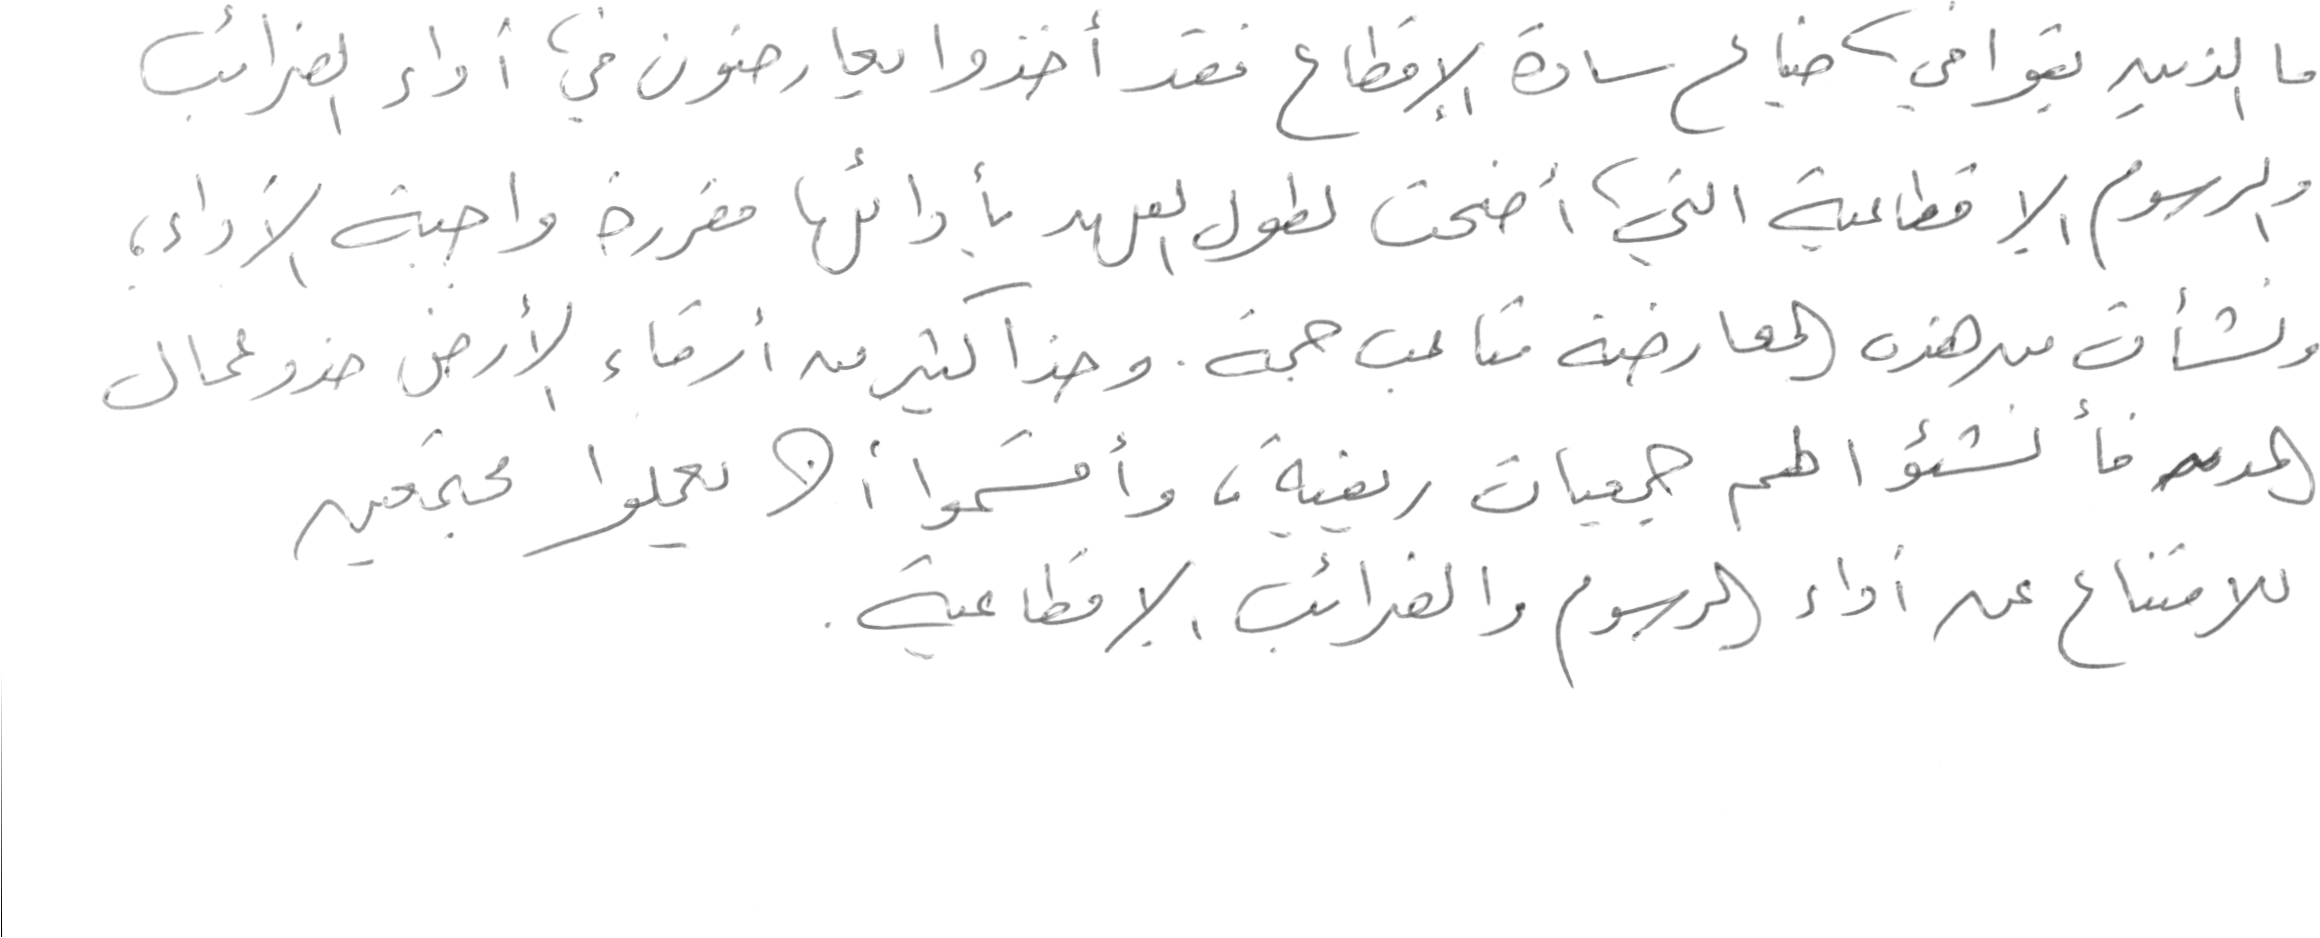 ما الذين بقوا في ضياع سادة الإقطاع فقد أخذوا يعارضون في أداء الضرائب
والرسوم الإقطاعية التي أضحت لطول العهد بأدائها مقررة واجبة الأداء،
ونشأت من هذه المعارضة متاعب جمة. وحذا كثير من أرقاء الأرض حذو عمال
المدن فأنشؤا لهم جمعيات ريفية، وأقسموا ألا يعملوا مجتمعين
للامتناع عن أداء الرسوم والضرائب الإقطاعية.